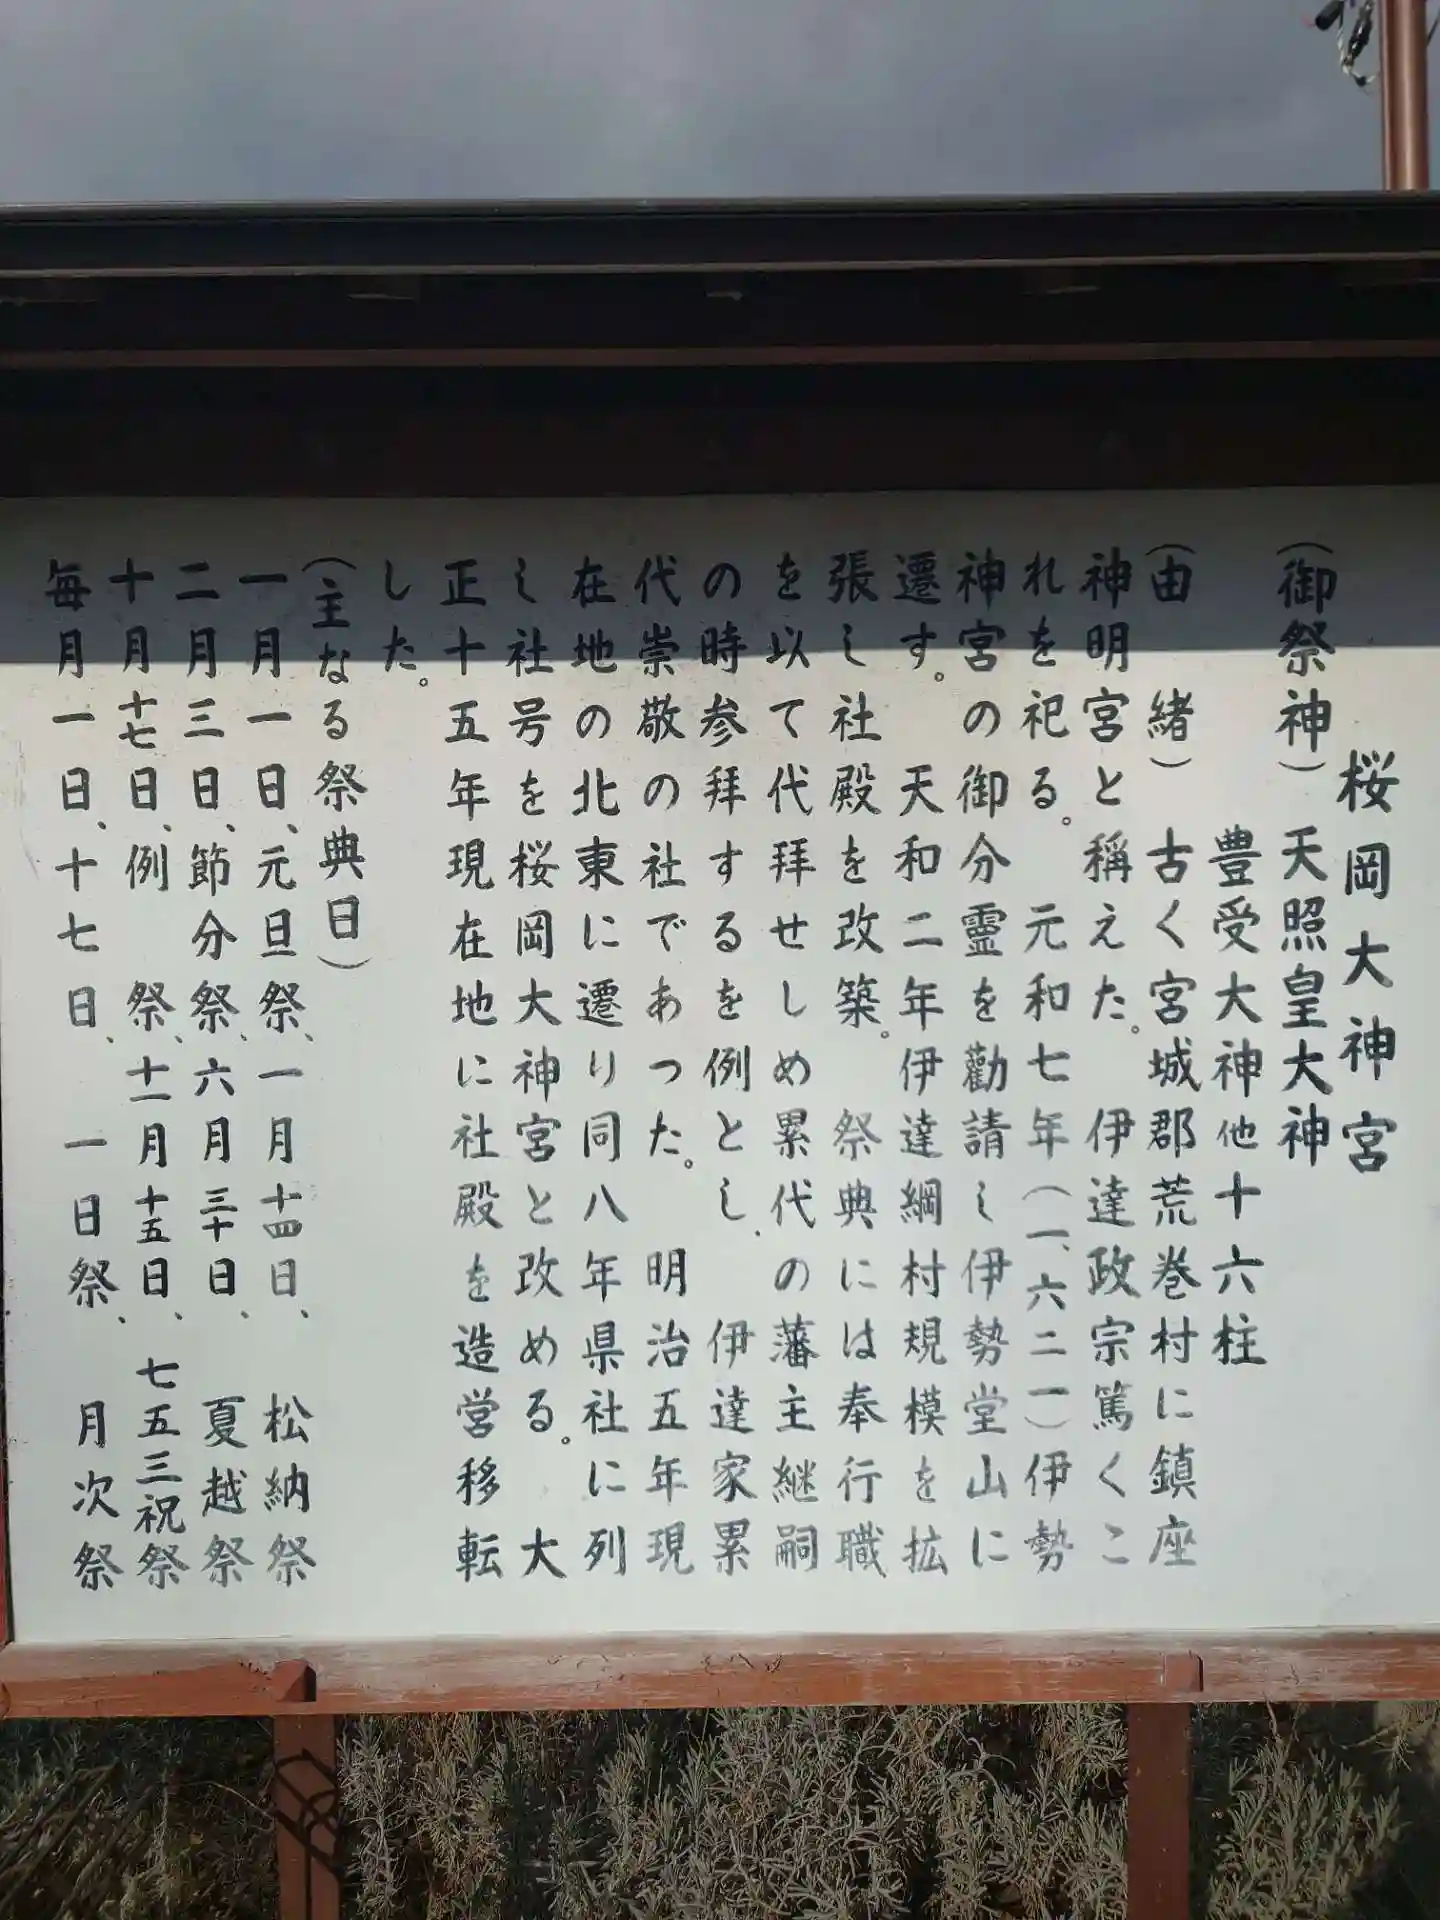 桜岡大神宮
(御祭神) 天照皇大神
豊受大神他十六柱
(由 緒) 古く宮城郡荒巻村に鎮座
神明宮と稱えた。 伊達政宗篤くこ
れを祀る。 元和七年(一、六二一)伊勢
神宮の御分霊を勸請し伊勢堂山に
遷す。 天和二年伊達綱村規模を拡
張し社殿を改築。 祭典には奉行職
を以て代拝せしめ累代の藩主継嗣
の時参拝するを例とし、 伊達家累
代崇敬の社であった。 明治五年現
在地の北東に遷り同八年県社に列
し社号を桜岡大神宮と改める。 大
正十五年現在地に社殿を造営移転
した。
(主なる祭典日)
一月一日、元旦祭、一月十四日、 松納祭
二月三日、節分祭、六月三十日、 夏越祭
十月十七日、例 祭、十一月十五日、七五三祝祭
毎月一日、十七日、 一日祭、 月次祭